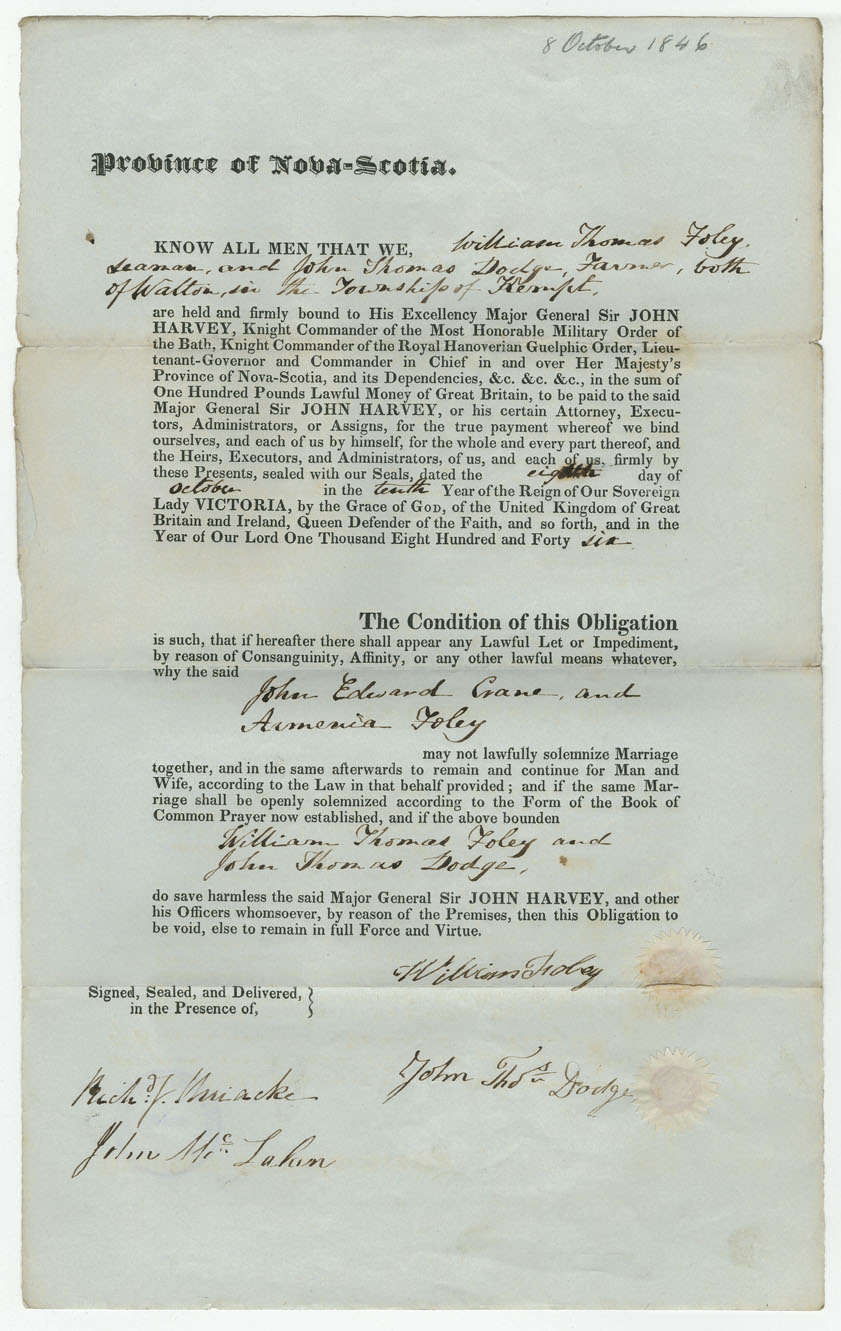 8 October 1846
Province of Nova-Scotia.
KNOW ALL MEN THAT WE, William Thomas Foley,
seaman, and John Thomas Dodge, Farmer, both
of Walton, in the Township of Kempt,
are held and firmly bound to His Excellency Major General Sir JOHN
HARVEY, Knight Commander of the Most Honorable Military Order of
the Bath, Knight Commander of the Royal Hanoverian Guelphic Order, Lieu-
tenant-Governor and Commander in Chief in and over Her Majesty's
Province of Nova-Scotia, and its Dependencies, &c. &c. &c., in the sum of
One Hundred Pounds Lawful Money of Great Britain, to be paid to the said
Major General Sir JOHN HARVEY, or his certain Attorney, Execu-
tors, Administrators, or Assigns, for the true payment whereof we bind
ourselves, and each of us by himself, for the whole and every part thereof, and
the Heirs, Executors, and Administrators, of us, and each of us, firmly by
these Presents, sealed with our Seals, dated the eighth day of
October in the tenth Year of the Reign of Our Sovereign
Lady VICTORIA, by the Grace of GOD, of the United Kingdom of Great
Britain and Ireland, Queen Defender of the Faith, and so forth, and in the
Year of Our Lord One Thousand Eight Hundred and Forty six
The Condition of this Obligation
is such, that if hereafter there shall appear any Lawful Let or Impediment,
by reason of Consanguinity, Affinity, or any other lawful means whatever,
why the said
John Edward Crane, and
Armenia Foley
may not lawfully solemnize Marriage
together, and in the same afterwards to remain and continue for Man and
Wife, according to the Law in that behalf provided; and if the same Mar-
riage shall be openly solemnized according to the Form of the Book of
Common Prayer now established, and if the above bounden
William Thomas Foley and
John Thomas Dodge,
do save harmless the said Major General Sir JOHN HARVEY, and other
his Officers whomsoever, by reason of the Premises, then this Obligation to
be void, else to remain in full Force and Virtue.
William Foley
Signed, Sealed, and Delivered,
in the Presence of,
John Thos Dodge
Richd J. Uniacke
John Mc